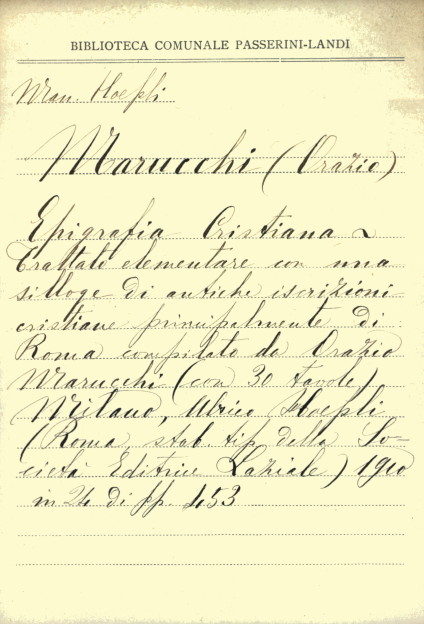 BIBLIOTECA COMUNALE PASSERINI-LANDI
Man. Hoepli
Marucchi (Orazio)
Epigrafia Cristiana ~
Trattato elementare con una
silloge di antiche iscrizioni
cristiane principalmente di
Roma compilato da Orazio
Marucchi (con 30 tavole)
Milano, Ulrico Hoepli
(Roma, stab. tip. della So-
cietà Editrice Laziale) 1910
in 24 di pp. 453